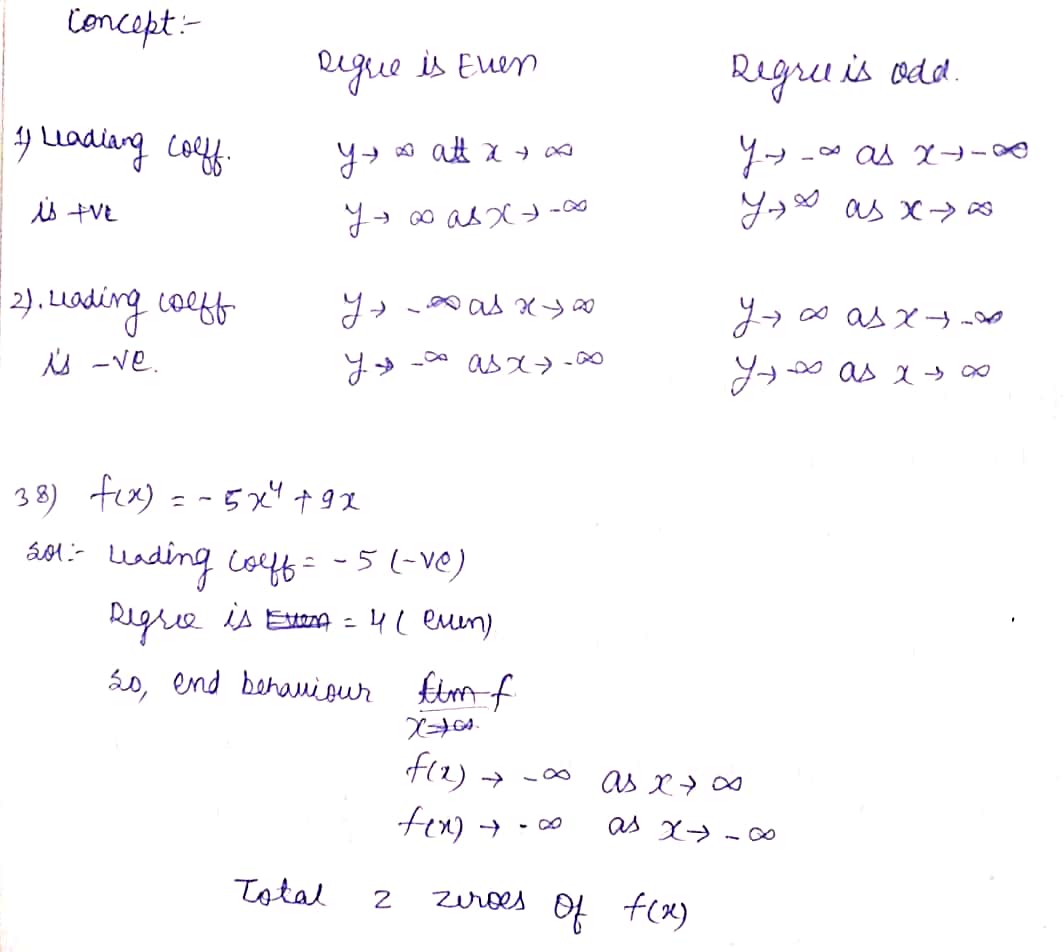 Concept:-
Degree is Even Degree is odd.
1) Leadiang Coeff. y→ ∞ att x → ∞ y→ -∞ as x→-∞
is +ve y→ ∞ as x→-∞ y→∞ as x→∞
2). Leading coeff y→ -∞ as x→∞ y→ ∞ as x→-∞
is -ve. y→ -∞ as x→-∞ y→-∞ as x→∞
38) f(x) = -5x⁴ + 9x
Sol:- Leading Coeff = -5 (-ve)
Degree is Even = 4 (even)
So, end behaviour lim f
x→∞.
f(x) → -∞ as x→ ∞
f(x) → -∞ as x→ -∞
Total 2 zeroes of f(x)